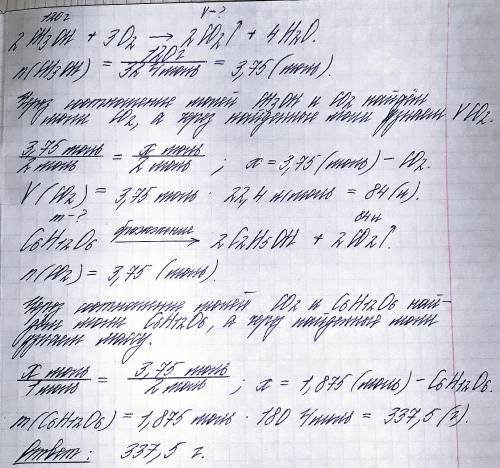 120г V-?
2 CH3OH + 3O2 → 2CO2↑ + 4H2O.
n(CH3OH) = 120г / 32 г/моль = 3,75 (моль).
Через соотношение молей CH3OH и CO2 найдём
моли CO2, а через найденные моли узнаем V CO2.
3,75 моль / 2 моль = x моль / 2 моль ; x = 3,75 (моль) - CO2.
V(CO2) = 3,75 моль · 22,4 л/моль = 84 (л).
m-? 84л
C6H12O6 брожение → 2C2H5OH + 2CO2↑.
n(CO2) = 3,75 (моль).
Через соотношение молей CO2 и C6H12O6 най-
дём моли C6H12O6, а через найденные моли
узнаем массу.
x моль / 1 моль = 3,75 моль / 2 моль ; x = 1,875 (моль) - C6H12O6.
m(C6H12O6) = 1,875 моль · 180 г/моль = 337,5 (г).
Ответ: 337,5 г.